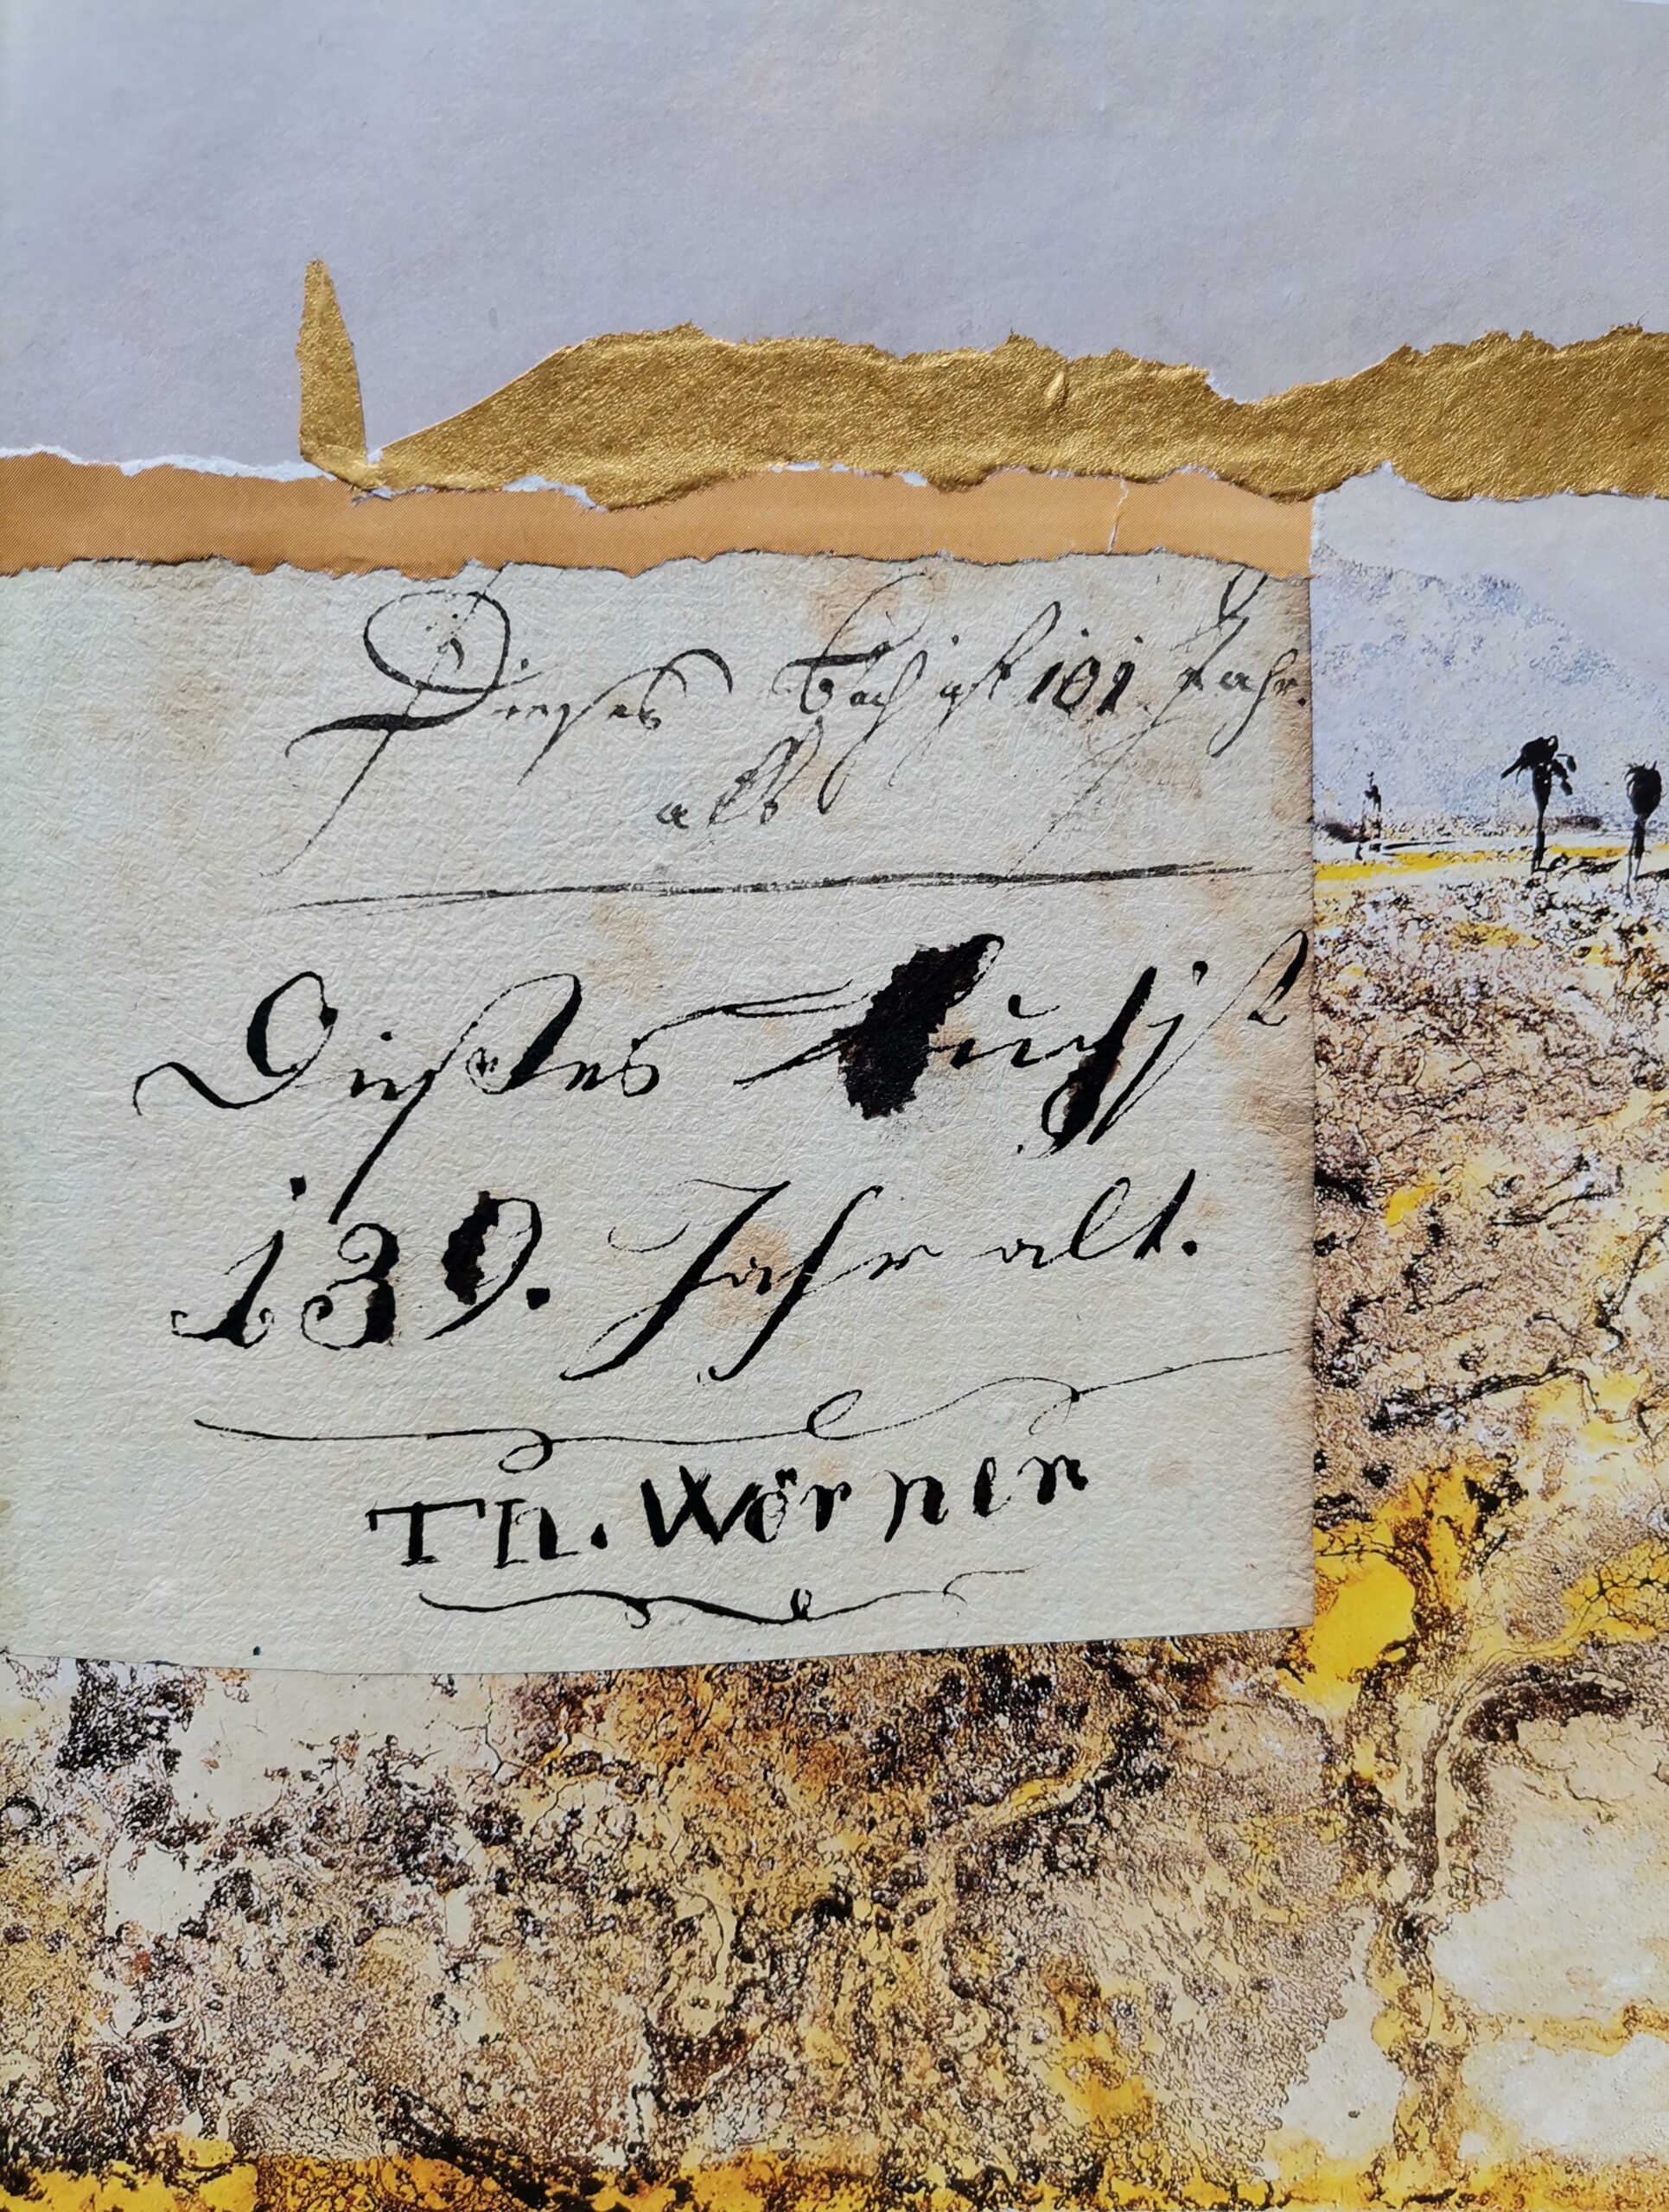 Dieses Buch ist 101 Jahr.
alt
Dießes Buch ist
139. Jahr alt.
Th. Wörner